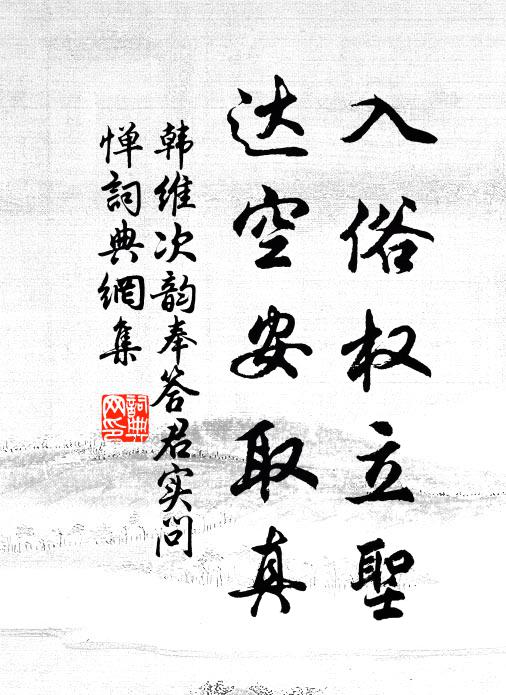 入俗权立聖
达空安取真
韩维次韵奉答君实问
惮詞典網集
詞典网印